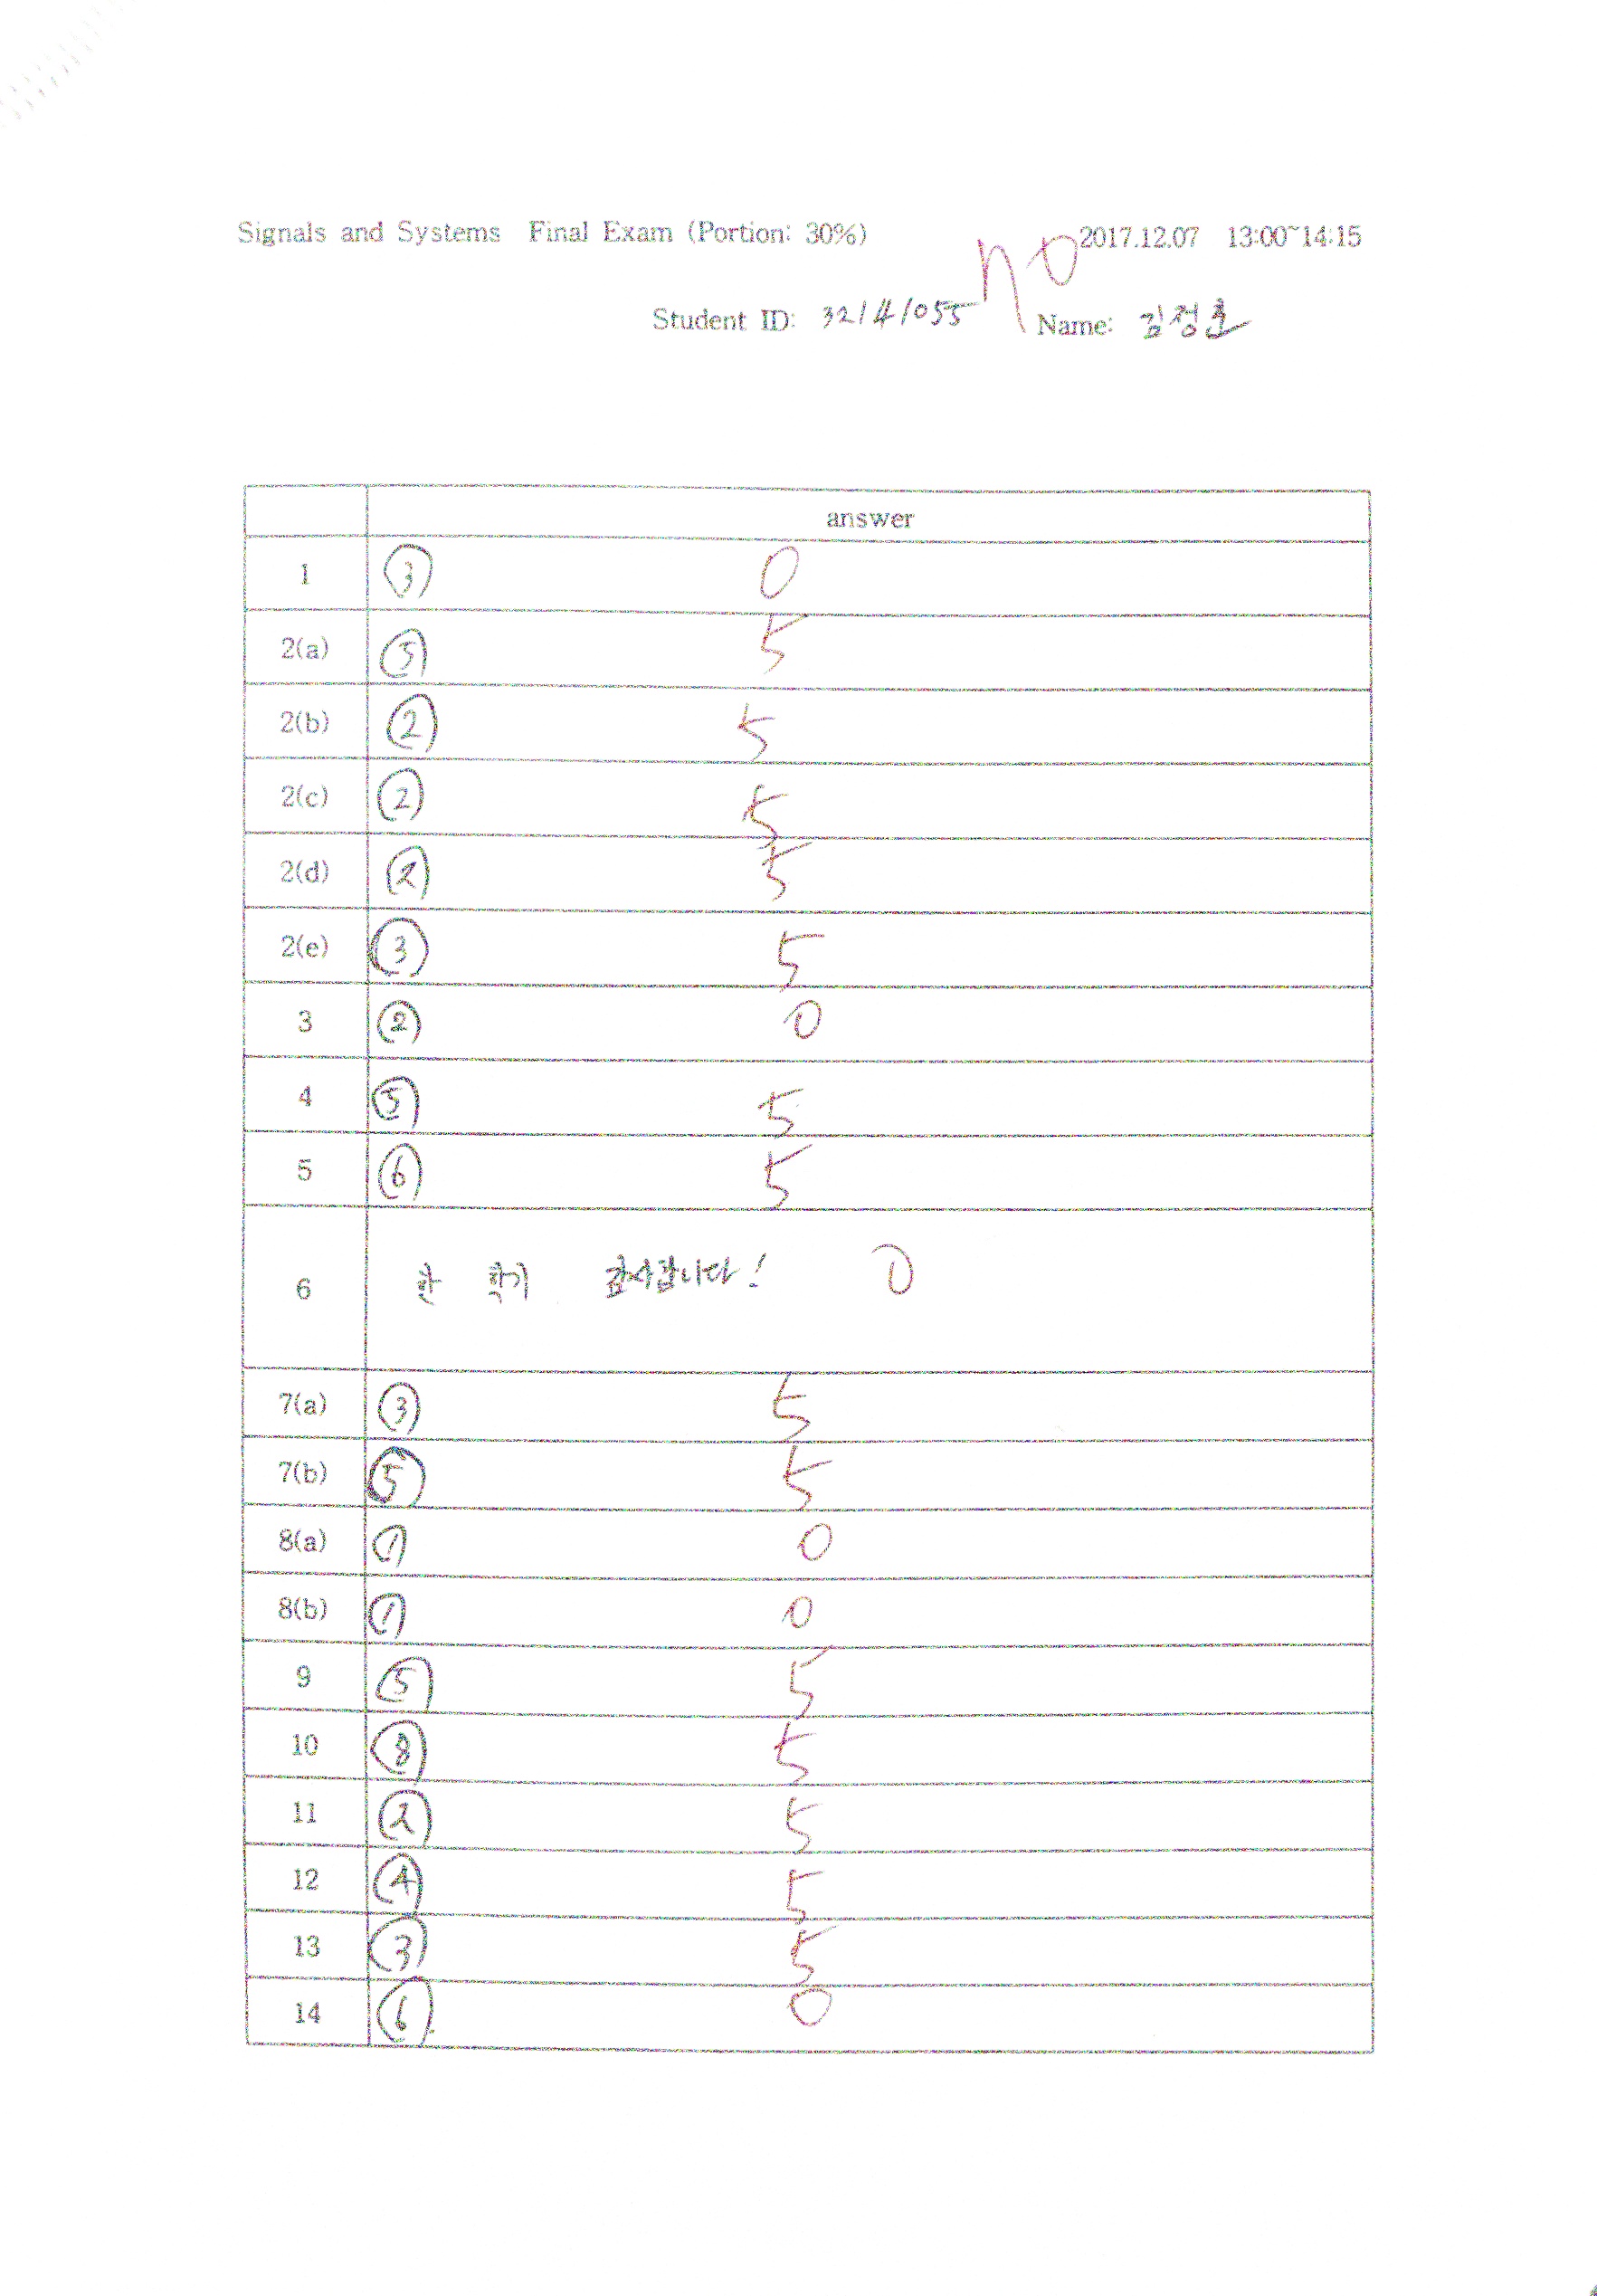 Signals and Systems Final Exam (Portion: 30%) 70 2017.12.07 13:00~14:15
Student ID: 32141055 Name:
answer
1 ③ 0
2(a) ⑤ 5
2(b) ② 5
2(c) ② 5
2(d) ② 5
2(e) ③ 5
3 ② 0
4 ⑤ 5
5 ⑥ 5
6 한 학기 감사합니다! 0
7(a) ③ 5
7(b) ⑤ 5
8(a) ① 0
8(b) ① 0
9 ⑤ 5
10 ⑧ 5
11 ② 5
12 ④ 5
13 ③ 5
14 ⑥ 0